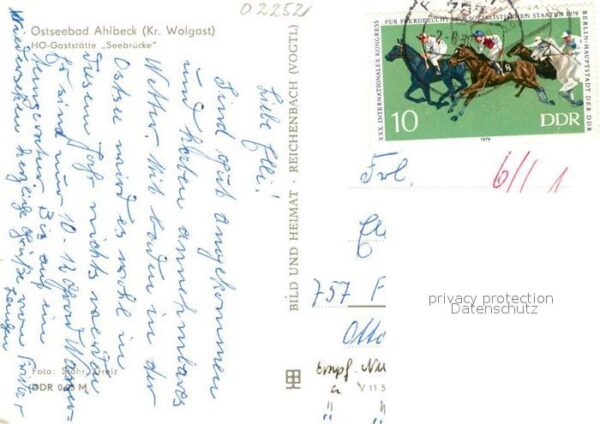 02252
Ostseebad Ahlbeck (Kr. Wolgast)
HO-Gaststätte „Seebrücke"
Liebe Elli!
Sind gut angekommen
und haben annehmbares
Wetter. Mit baden in der
Ostsee wird es wohl in
diesem Jahr nichts werden
Es sind nur 10-12 Grad Wasser-
Bis auf ein
herzliche Grüße von
Foto: Stöhr, Greiz
DDR M
BILD UND HEIMAT · REICHENBACH (VOGTL)
V 11 3
XXX. INTERNATIONALER KONGRESS
FÜR PFERDEZUCHT DER SOZIALISTISCHEN STAATEN 1974
BERLIN-HAUPTSTADT DER DDR
10
DDR
1974
Frl.
757 F
Otto
Empf.
" "
privacy protection
Datenschutz